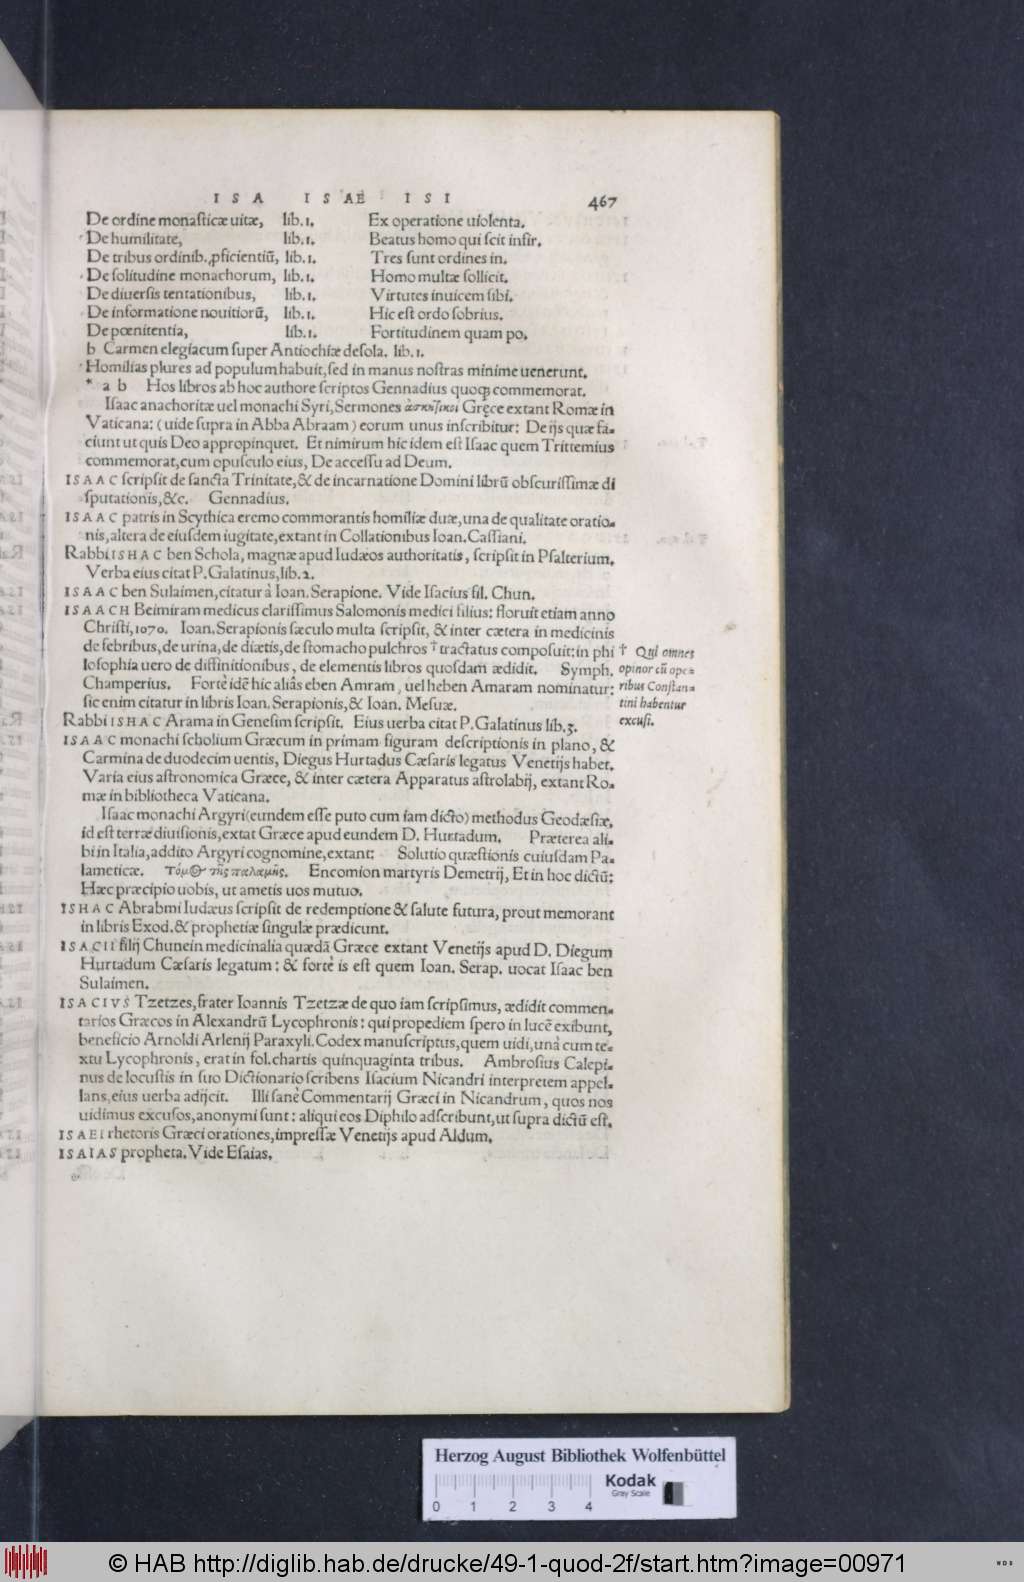 ISA ISAE ISI 467
De ordine monasticæ uitæ, lib.1. Ex operatione uiolenta.
De humilitate, lib.1. Beatus homo qui scit insir.
De tribus ordinib. ꝓficientiũ, lib.1. Tres sunt ordines in.
De solitudine monachorum, lib.1. Homo multæ sollicit.
De diuersis tentationibus, lib.1. Virtutes inuicem sibi.
De informatione nouitiorũ, lib.1. Hic est ordo sobrius.
De pœnitentia, lib.1. Fortitudinem quam po.
b Carmen elegiacum super Antiochiæ desola. lib.1.
Homilias plures ad populum habuit, sed in manus nostras minime uenerunt.
* a b Hos libros ab hoc authore scriptos Gennadius quoq; commemorat.
Isaac anachoritæ uel monachi Syri, Sermones ἀσκητικοὶ Gręce extant Romæ in
Vaticana: (uide supra in Abba Abraam) eorum unus inscribitur: De ijs quæ fa-
ciunt ut quis Deo appropinquet. Et nimirum hic idem est Isaac quem Trittemius
commemorat, cum opusculo eius, De accessu ad Deum.
ISAAC scripsit de sancta Trinitate, & de incarnatione Domini librũ obscurissimæ di
sputationis, &c. Gennadius.
ISAAC patris in Scythica eremo commorantis homiliæ duæ, una de qualitate oratio-
nis, altera de eiusdem iugitate, extant in Collationibus Ioan. Cassiani.
Rabbi ISHAC ben Schola, magnæ apud Iudæos authoritatis, scripsit in Psalterium.
Verba eius citat P. Galatinus, lib.2.
ISAAC ben Sulaimen, citatur à Ioan. Serapione. Vide Isacius fil. Chun.
ISAACH Beimiram medicus clarissimus Salomonis medici filius: floruit etiam anno
Christi, 1070. Ioan. Serapionis sæculo multa scripsit, & inter cætera in medicinis
de febribus, de urina, de diætis, de stomacho pulchros † tractatus composuit: in phi
losophia uero de diffinitionibus, de elementis libros quosdam ædidit. Symph.
Champerius. Fortè idẽ hic aliâs eben Amram, uel heben Amaram nominatur:
sic enim citatur in libris Ioan. Serapionis, & Ioan. Mesuæ.
† Qui omnes
opinor cũ ope-
ribus Constan-
tini habentur
excusi.
Rabbi ISHAC Arama in Genesim scripsit. Eius uerba citat P. Galatinus lib.3.
ISAAC monachi scholium Græcum in primam figuram descriptionis in plano, &
Carmina de duodecim uentis, Diegus Hurtadus Cæsaris legatus Venetijs habet.
Varia eius astronomica Græce, & inter cætera Apparatus astrolabij, extant Ro-
mæ in bibliotheca Vaticana.
Isaac monachi Argyri (eundem esse puto cum iam dicto) methodus Geodæsiæ,
id est terræ diuisionis, extat Græce apud eundem D. Hurtadum. Præterea ali-
bi in Italia, addito Argyri cognomine, extant: Solutio quæstionis cuiusdam Pa-
lameticæ. Τόμος τῆς παλαμῆς. Encomion martyris Demetrij, Et in hoc dictũ:
Hæc præcipio uobis, ut ametis uos mutuo.
ISHAC Abrabmi Iudæus scripsit de redemptione & salute futura, prout memorant
in libris Exod. & prophetiæ singulæ prædicunt.
ISACII filij Chunein medicinalia quædã Græce extant Venetijs apud D. Diegum
Hurtadum Cæsaris legatum: & fortè is est quem Ioan. Serap. uocat Isaac ben
Sulaimen.
ISACIVS Tzetzes, frater Ioannis Tzetzæ de quo iam scripsimus, ædidit commen-
tarios Græcos in Alexandrũ Lycophronis: qui propediem spero in lucẽ exibunt,
beneficio Arnoldi Arlenij Paraxyli. Codex manuscriptus, quem uidi, unà cum te-
xtu Lycophronis, erat in fol. chartis quinquaginta tribus. Ambrosius Calepi-
nus de locustis in suo Dictionario scribens Isacium Nicandri interpretem appel-
lans, eius uerba adijcit. Illi sanè Commentarij Græci in Nicandrum, quos nos
uidimus excusos, anonymi sunt: aliqui eos Diphilo adscribunt, ut supra dictũ est.
ISAEI rhetoris Græci orationes, impressæ Venetijs apud Aldum.
ISAIAS propheta. Vide Esaias.
Herzog August Bibliothek Wolfenbüttel
Kodak
Gray Scale
0 1 2 3 4
© HAB http://diglib.hab.de/drucke/49-1-quod-2f/start.htm?image=00971
WDB